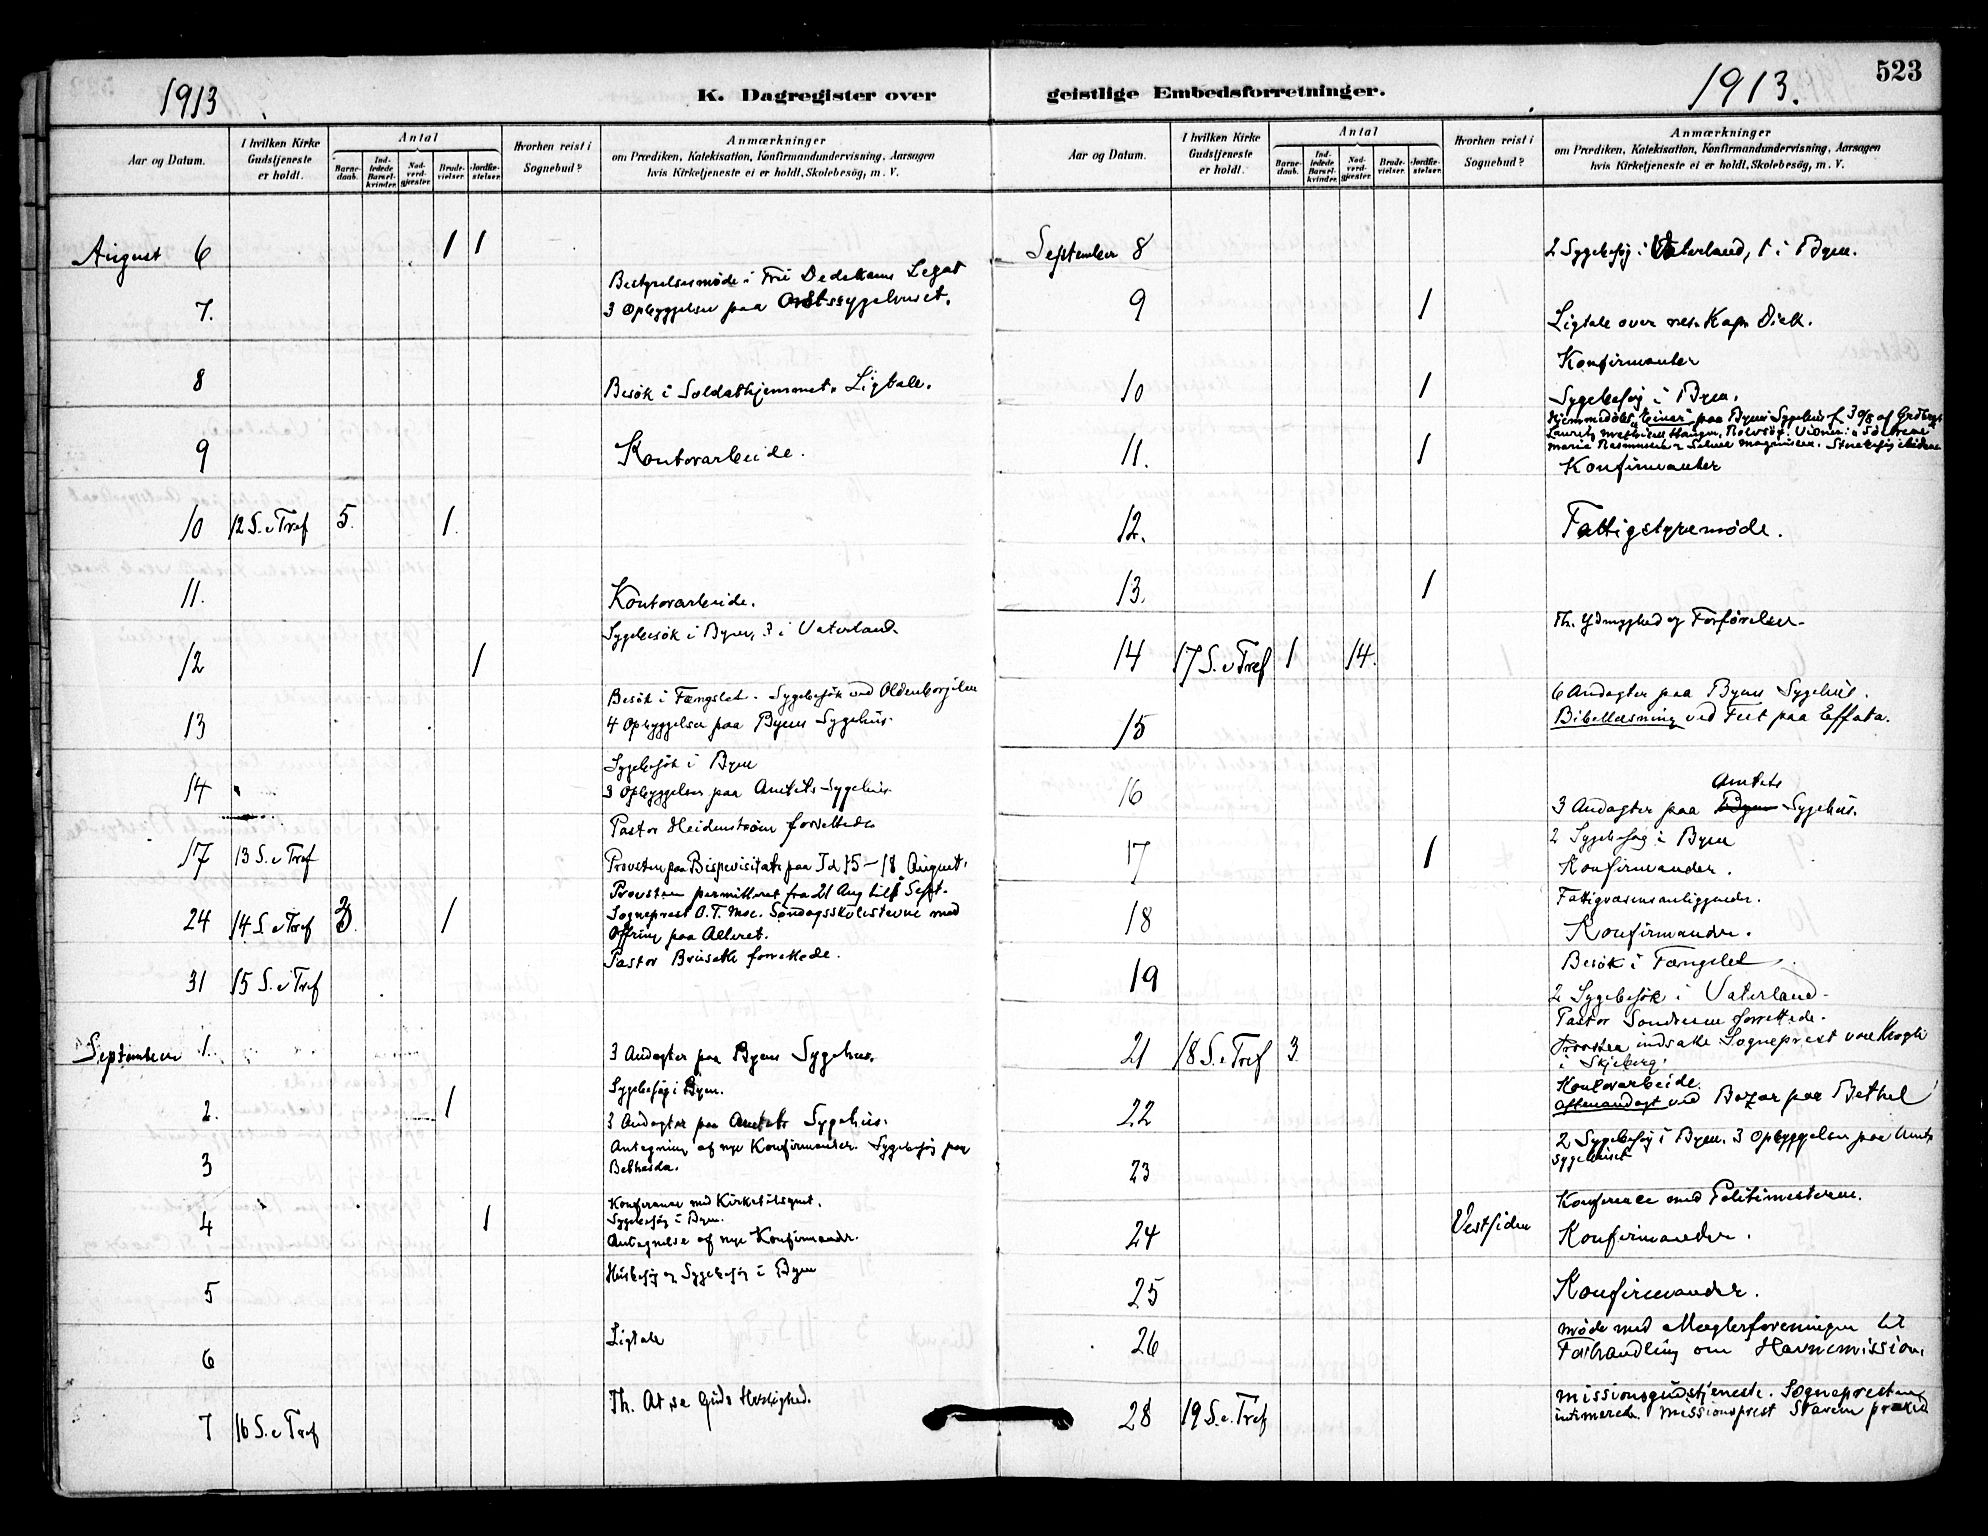 1913
K. Dagregister over
Aar og Datum.
I hvilken Kirke Gudstjeneste er holdt.
Antal
Barnedaab.
Indledede Barselkvinder.
Nadverdgjester.
Brudevielser.
Jordfæstelser.
Hvorhen reist i Sognebud?
Anmærkninger
om Prædiken, Katekisation, Konfirmandundervisning, Aarsagen
hvis Kirketjeneste ei er holdt, Skolebesög, m. V.
August 6 1 1
Bestyrelsesmøde i Legat
7. 3 Opbyggelser paa
8 Besøk i Soldathjemmet. Ligtale.
9 Kontorarbeide.
10 12 S. e Tref 5. 1.
11. Kontorarbeide.
Sygebesøk i Byen, 3 i Vaterland.
12 1
Besøk i Fængslet. Sygebesøk ved
13 4 Opbyggelser paa Byens Sygehus.
Sygebesøk i Byen
14 3 Opbyggelser paa Amtets Sygehus.
Pastor Heidenstrøm forrettede
17 13 S. e Tref
Provsten paa Bispevisitats paa Id 15-18 August.
Provsten permitteret fra 21 Aug til Sept.
24 14 S. e Tref 1 Sogneprest O. T. Moe. Søndagsskolestevne med
Offring paa Alteret.
Pastor forrettede.
31 15 S. e Tref
September 1. 3 Andagter paa Byens Sygehus.
Sygebesøg i Byen.
2. 1
3 Andagter paa Amtets Sygehus.
Antagning af nye Konfirmander. Sygebesøg paa
3 Bethesda.
Konferanse med Kirketilsynet.
4 1 Sygebesøg i Byen.
Antagelse af nye Konfirmander.
Husbesøg og Sygebesøg i Byen
5
Ligtale
6
Th. At se Guds Herlighed.
7 16 S. e Tref
geistlige Embedsforretninger.
1913.
523
Aar og Datum.
I hvilken Kirke Gudstjeneste er holdt.
Antal
Barnedaab.
Indledede Barselkvinder.
Nadverdgjester.
Brudevielser.
Jordfæstelser.
Hvorhen reist i Sognebud?
Anmærkninger
om Prædiken, Katekisation, Konfirmandundervisning, Aarsagen
hvis Kirketjeneste ei er holdt, Skolebesög, m. V.
September 8 2 Sygebesøg i Vaterland, 1 i Byen.
9 1
Ligtale over
Konfirmanter
10 1 Sygebesøg i Byen.
Hjemmedøbt "Einar" paa Byens Sygehus
11. 1
Konfirmanter
12. Fattigstyremøde.
13. 1
Th. Ydmyghed og Forførelser.
14 17 S. e Tref 1 14.
6 Andagter paa Byens Sygehus.
15 Bibellæsning ved Fest paa Effata.
Amtets
16 3 Andagter paa Byens Sygehus.
2 Sygebesøg i Byen
17 1 Konfirmander.
Fattigvæsensanliggender.
18 Konfirmander.
Besøk i Fængslet
19
2 Sygebesøk i Vaterland.
Pastor forrettede.
21 18 S. e Tref 3. Provsten indsatte Sogneprest von Krogh
i Skjeberg.
Kontorarbeide.
22 Aftenandagt ved Bazar paa Bethel
2 Sygebesøg i Byen. 3 Opbyggelser paa Amts
23 sygehuset
Konference med Politimesteren.
24 Vestsiden Konfirmander.
25 Konfirmander.
Møde med Mæglerforeningen til
26 Forhandling om Havnemission.
Missionsgudstjeneste. Sognepresten
28 19 S. e. Tref Missionsprest Stavem